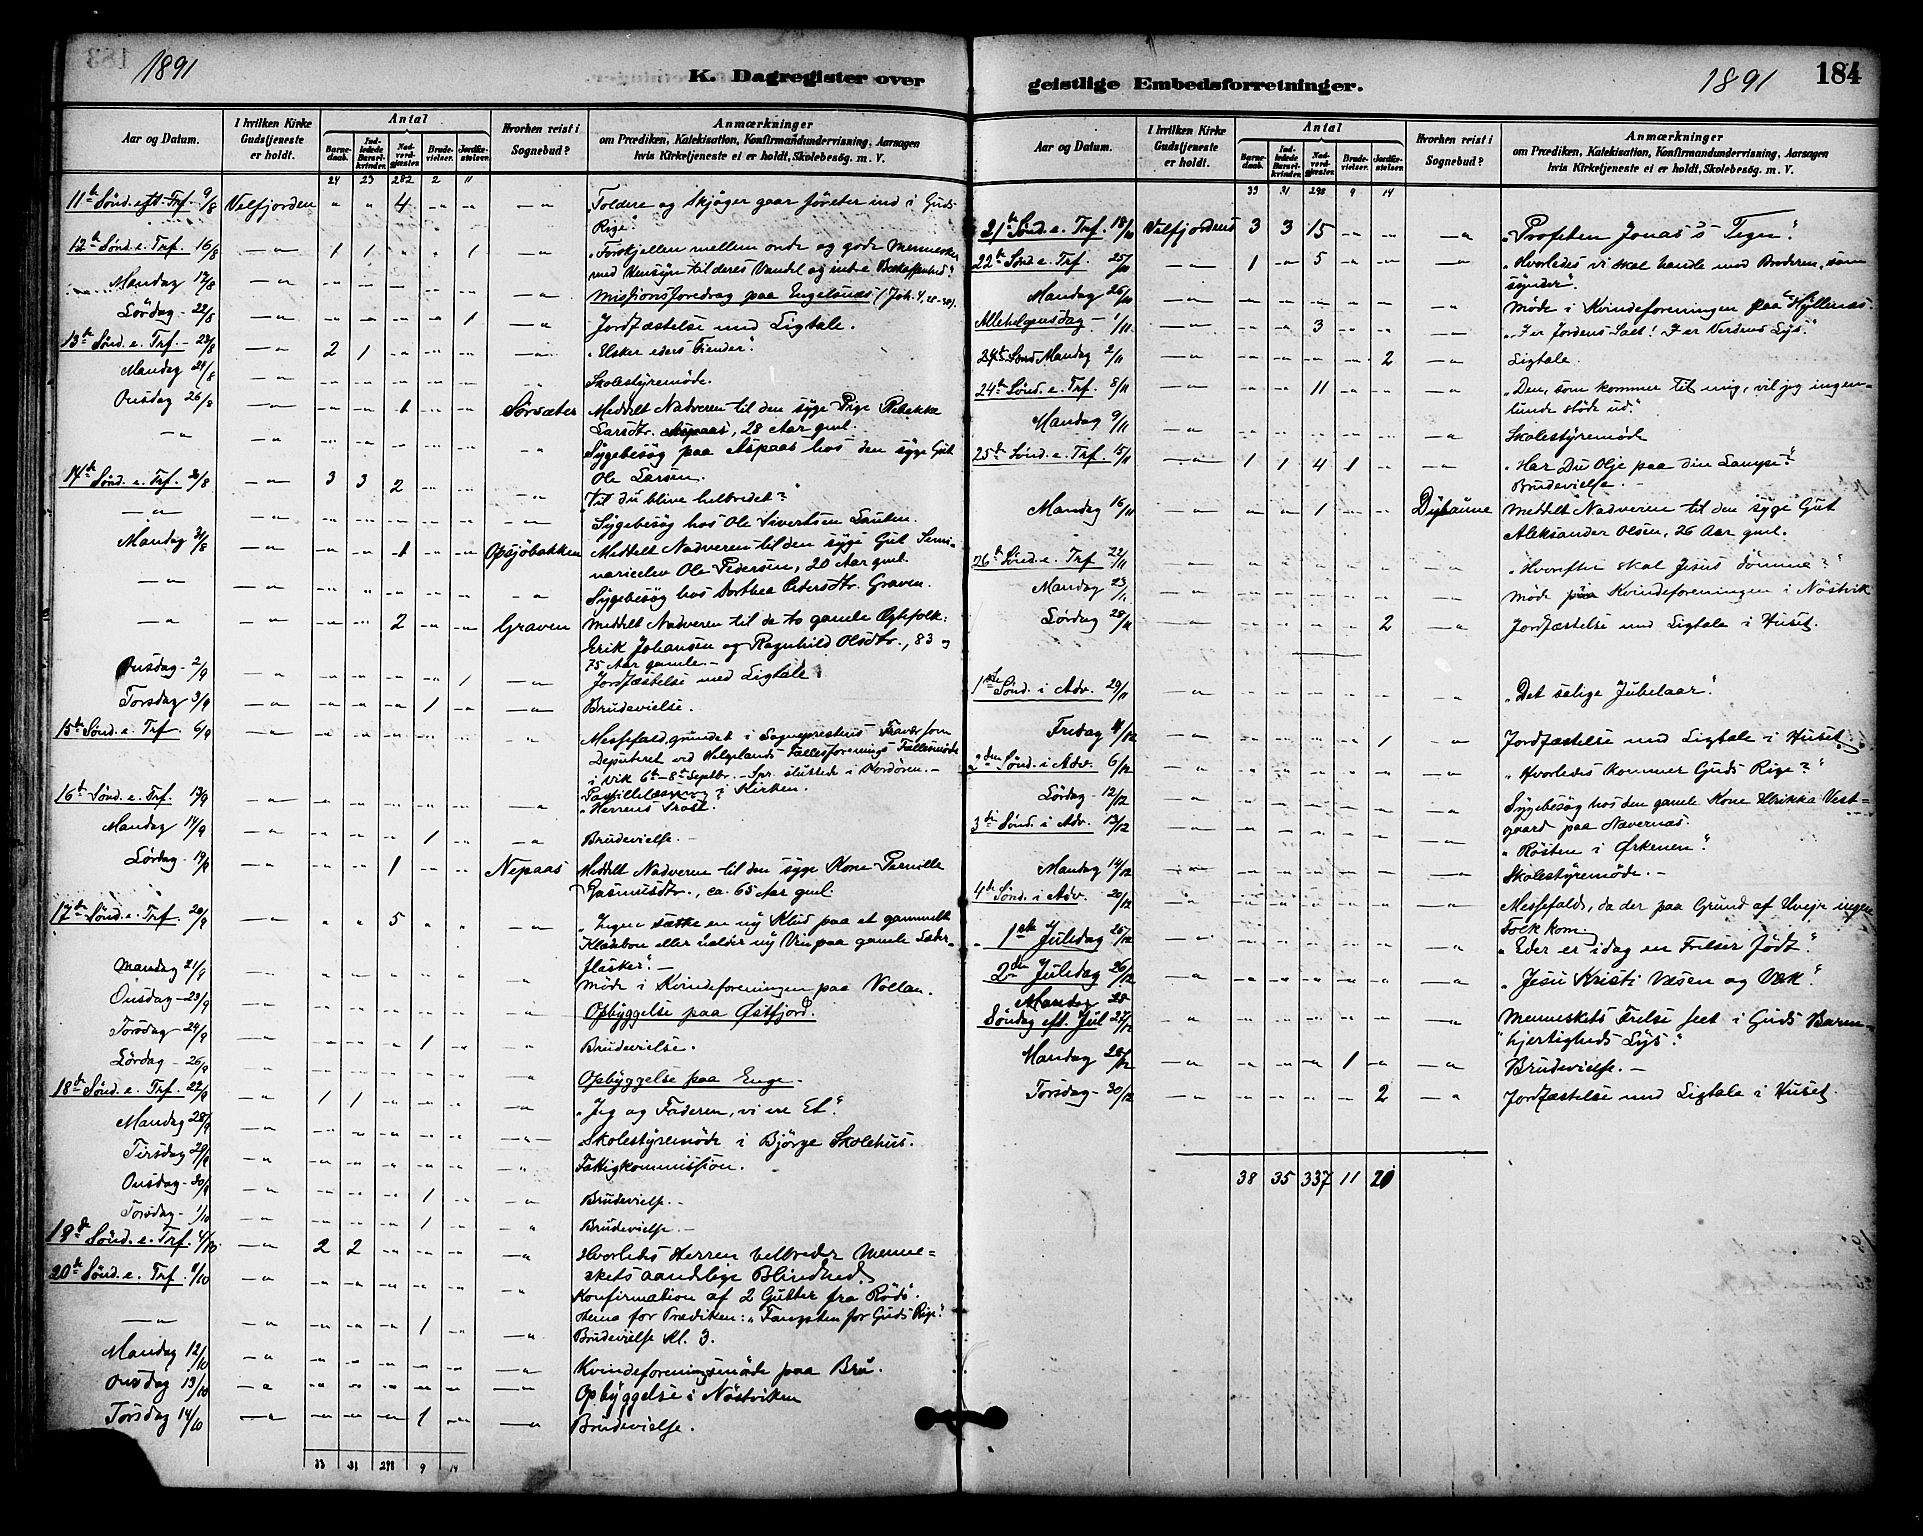 1891
K. Dagregister over
Aar og Datum.
I hvilken Kirke Gudstjeneste er holdt.
Antal
Barnedaab.
Indledede Barselkvinder.
Nadverdgjester.
Brudevielser.
Jordfæstelser.
Hvorhen reist i Sognebud?
Anmærkninger
om Prædiken, Katekisation, Konfirmandundervisning, Aarsagen
hvis Kirketjeneste ei er holdt, Skolebesög m. V.
24 23 282 2 11
11te Sönd. eft. Trf. 9/8 Velfjorden " " 4 " " —"— Toldere og Skjöger gaar företer ind i Guds
Rige."
12te Sönd. e. Trf. 16/8 —"— 1 1 " " 1 —"— "Forskjellen mellem onde og gode Mennesker
med Hensyn til deres Vandel og indre Beskaffenhed."
Mandag 17/8 —"— " " " " " —"— Missionsforedrag paa Engelsnæs (Joh. 4. 28-30).
Lördag 22/8 —"— " " " " 1 —"— Jordfæstelse med Ligtale.
13de Sönd. e. Trf. 23/8 —"— 2 1 " " " —"— "Elsker eders Fiender".
Mandag 24/8 —"— " " " " " " Skolestyremöde.
Onsdag 26/8 —"— " " 1 " " Sörsæter Meddelt Nadveren til den syge Pige Rebekka
Larsdtr. Aspaas, 28 Aar gml.
—"— —"— " " " " " " Sygebesög paa Aspaas hos den syge Gut
Ole Larsen.
14de Sönd. e. Trf. 30/8 —"— 3 3 2 " " "Vil du blive helbredet?"
—"— —"— " " " " " —"— Sygebesög hos Ole Sivertsen Lauten.
Mandag 31/8 —"— " " 1 " " Opsjöbakken Meddelt Nadveren til den syge Gut Semi-
narieelev Ole Pedersen, 20 Aar gml.
—"— —"— " " " " " —"— Sygebesög hos Dorthea Pedersdtr. Graven.
—"— —"— " " 2 " " Graven Meddelt Nadveren til de to gamle Ægtefolk:
Erik Johansen og Ragnhild Olsdtr., 83 og
75 Aar gamle.—
Onsdag - 2/9 —"— " " " " 1 —"— Jordfæstelse med Ligtale
Torsdag 3/9 —"— " " " 1 " —"— Brudevielse.
15de Sönd. e. Trf. 6/9 —"— " " " " " " Messefald, grundet i Sognepræstens Fravær som
Deputeret ved Helgelands Fællesforenings Fællesmöde
i Vik 6te-8de Septbr. - Spr. sluttede i Nordören.—
Postillelæsning i Kirken.
16de Sönd. e. Trf. 13/9 —"— " " " " " —"— "Herrens Tröst."
Mandag 14/9 —"— " " " 1 " " Brudevielse.—
Lördag - 19/9 —"— " " 1 " " Nepaas Meddelt Nadveren til den syge Kone Pernille
Rasmusdtr., ca. 65 Aar gml.
17de Sönd. e. Trf. 20/9 —"— " " 5 " " —"— "Ingen sætter en ny Klud paa et gammelt
Klædebon eller helder ny Vin paa gamle Læder-
flasker".—
Mandag 21/9 " " " " " " " Möde i Kvindeforeningen paa Vollan.
Onsdag - 23/9 —"— " " " " " " Opbyggelse paa Østfjord.
Torsdag 24/9 —"— " " " 1 " " Brudevielse.
Lördag - 26/9 —"— " " " " " " Opbyggelse paa Enge.
18de Sönd. e. Trf. 27/9 —"— 1 1 " " " —"— "Jeg og Faderen, vi ere Et".
Mandag 28/9 —"— " " " " " —"— Skolestyremöde i Björge Skolehus.
Tirsdag 29/9 —"— " " " " " " Fattigkommission.
Onsdag - 30/9 —"— " " " 1 " —"— Brudevielse.—
Torsdag - 1/10 —"— " " " 1 " " Brudevielse.—
19de Sönd. e. Trf. 4/10 —"— 2 2 " " " —"— Hvorledes Herren helbreder Menne-
skets aandelige Blindhed.
20de Sönd. e. Trf. 11/10 —"— " " " " " " Konfirmation af 2 Gutter fra Röds.
Thema for Prædiken: "Fangsten for Guds Rige".
—"— " " " 1 " —"— Brudevielse Kl. 3.
Mandag 12/10 —"— " " " " " —"— Kvindeforeningsmöde paa Bru.
Onsdag 13/10 —"— " " " " " —"— Opbyggelse i Nöstviken
Torsdag 14/10 —"— " " " 1 " —"— Brudevielse.
33 31 298 9 14
geistlige Embedsforretninger.
1891
184
Aar og Datum.
I hvilken Kirke Gudstjeneste er holdt.
Antal
Barnedaab.
Indledede Barselkvinder.
Nadverdgjester.
Brudevielser.
Jordfæstelser.
Hvorhen reist i Sognebud?
Anmærkninger
om Prædiken, Katekisation, Konfirmandundervisning, Aarsagen
hvis Kirketjeneste ei er holdt, Skolebesög m. V.
33 31 298 9 14
21de Sönd. e. Trf. 18/10 Velfjordens 3 3 15 " " —"— "Profeten Jonas's Tegn."
22de Sönd. e. Trf. 25/10 —"— 1 " 5 " " —"— "Hvorledes vi skal handle med Broderen, som
synder".
Mandag 26/10 —"— " " " " " —"— Möde i Kvindeforeningen paa Hyllernæs.
Allehelgensdag - 1/11 —"— " " 3 " " —"— "I er Jordens Salt! I er Verdens Lys".
Mandag 2/11 —"— " " " " 2 —"— Ligtale.
24de Sönd. e. Trf. 8/11 —"— " " 11 " " —"— "Den, som kommer til mig, vil jeg ingen-
lunde stöde ud."
Mandag 9/11 " " " " " —"— Skolestyremöde
25de Sönd. e. Trf. 15/11 —"— 1 1 4 1 " —"— "Har Du Olje paa din Lampe?"
Brudevielse.—
Mandag 16/11 —"— " " 1 " " Dybaune Meddelt Nadveren til den syge Gut
Aleksander Olsen, 26 Aar gml.
26de Sönd. e. Trf 22/11 —"— " " " " " —"— "Hvorefter skal Jesus dömme?"
Mandag 23/11 —"— " " " " " —"— Möde paa Kvindeforeningen i Nöstvik
Lördag 28/11 —"— " " " " 2 —"— Jordfæstelse med Ligtale i Huset.
1ste Sönd. i Adv. 29/11 —"— " " " " " " "Det salige Jubelaar".
Fredag 4/12 —"— " " " " 1 —"— Jordfæstelse med Ligtale i Huset
2den Sönd. i Adv. 6/12 —"— " " " " " —"— "Hvorledes kommer Guds Rige?"
Lördag 12/12 —"— " " " " " —"— Sygebesög hos den gamle Kone Ulrikka Vest-
gaard paa Nævernæs.
3die Sönd. i Adv. 13/12 —"— " " " " " —"— "Rösten i Ørkenen".
Mandag 14/12 —"— " " " " " —"— Skolestyremöde.—
4de Sönd. i Adv. 20/12 —"— " " " " " —"— Messefald, da der paa Grund af Uveir ingen
Folk kom.
1ste Juledag 25/12 —"— " " " " " —"— "Eder er idag en Frelser födt".
2den Juledag 26/12 —"— " " " " " —"— "Jesu Kristi Væsen og Værk".
Mandag 28
Söndag eft. Jul 27/12 —"— " " " " " —"— "Menneskets Frelse seet i Guds Barm-
hjertigheds Lys".
Mandag 28/12 —"— " " " 1 " —"— Brudevielse.—
Torsdag - 30/12 —"— " " " " 2 —"— Jordfæstelse med Ligtale i Huset.
38 35 337 11 20